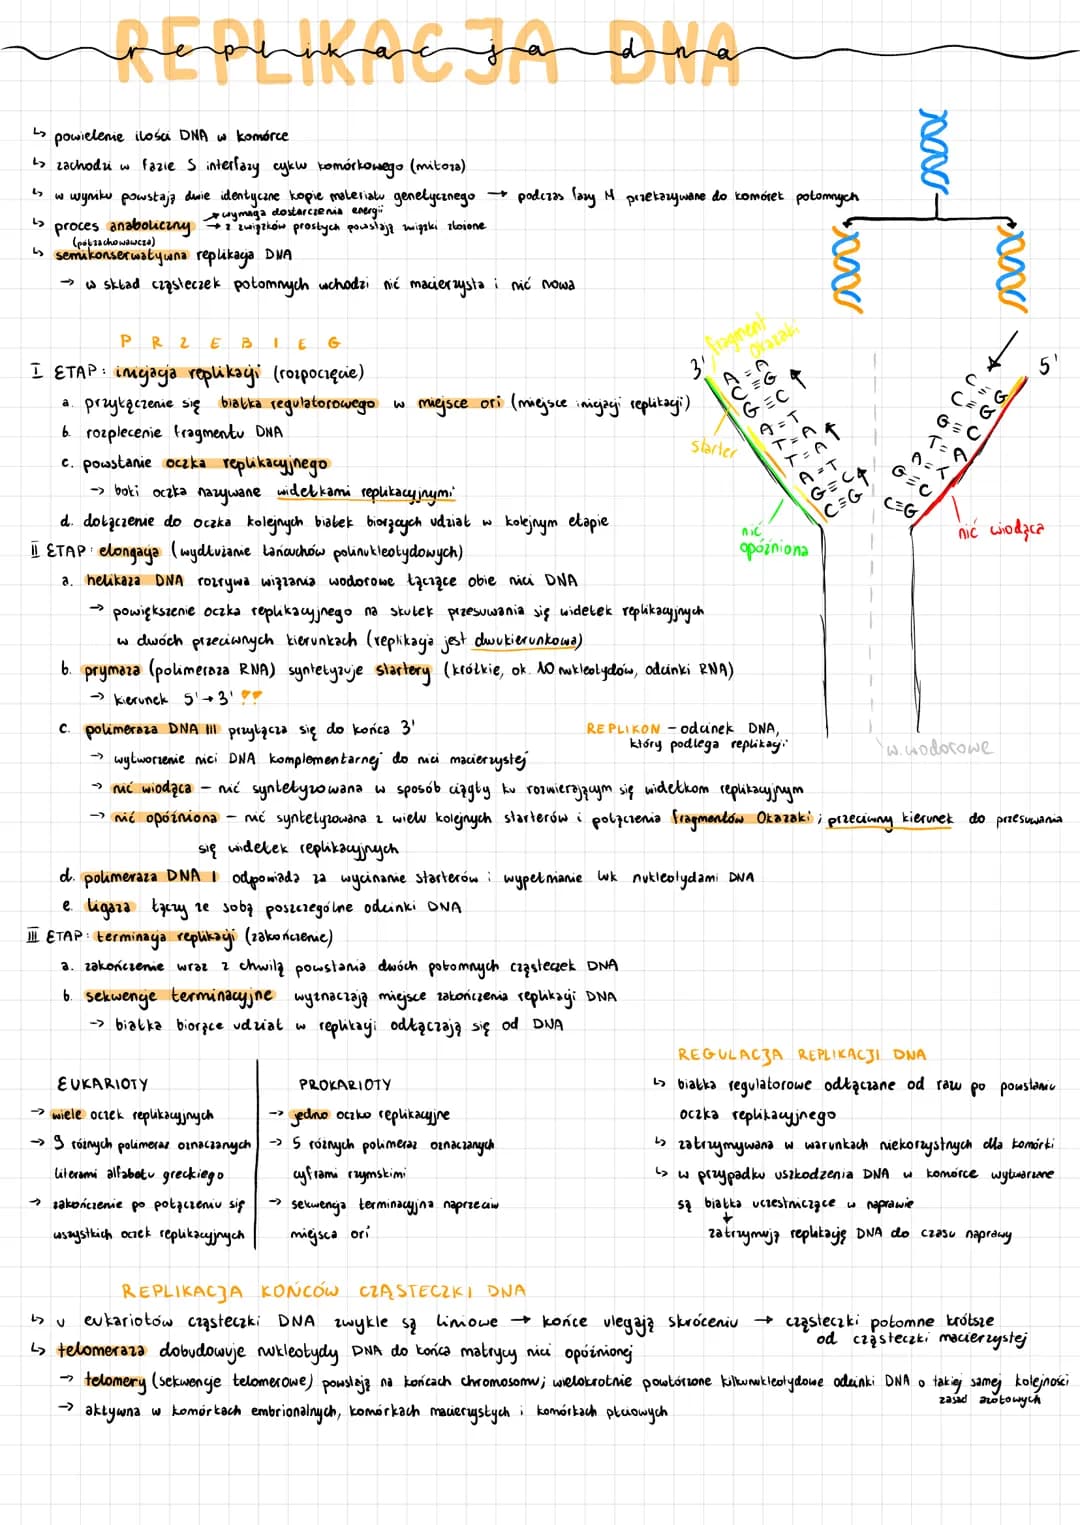 REPLIKACJA DNA
replikacja dna
↳ powielenie ilości DNA w komórce
↳ zachodzi w fazie S interfazy cyklu komórkowego (mitoza)
↳ w wyniku powstają dwie identyczne kopie materiału genetycznego → podczas fazy M przekazywane do komórek potomnych
↳ proces anaboliczny → wymaga dostarczenia energii
→ z związków prostych powstają związki złożone
(półzachowawcza)
↳ semikonserwatywna replikacja DNA
→ w skład cząsteczek potomnych wchodzi nić macierzysta i nić nowa
PRZEBIEG
I ETAP: inicjacja replikacji (rozpoczęcie)
a. przyłączenie się białka regulatorowego w miejsce ori (miejsce inicjacji replikacji)
b. rozplecenie fragmentu DNA
c. powstanie oczka replikacyjnego
→ boki oczka nazywane widełkami replikacyjnymi
d. dołączenie do oczka kolejnych białek biorących udział w kolejnym etapie
II ETAP: elongacja (wydłużanie łańcuchów polinukleotydowych)
a. helikaza DNA rozrywa wiązania wodorowe łączące obie nici DNA
→ powiększenie oczka replikacyjnego na skutek przesuwania się widełek replikacyjnych
w dwóch przeciwnych kierunkach (replikacja jest dwukierunkowa)
b. prymaza (polimeraza RNA) syntetyzuje startery (krótkie, ok. 10 nukleotydów, odcinki RNA)
→ kierunek 5'→3' ??
c. polimeraza DNA III przyłącza się do końca 3'
→ wytworzenie nici DNA komplementarnej do nici macierzystej
→ nić wiodąca – nić syntetyzowana w sposób ciągły ku rozwierającym się widełkom replikacyjnym
→ nić opóźniona – nić syntetyzowana z wielu kolejnych starterów i połączenia fragmentów Okazaki; przeciwny kierunek do przesuwania
się widełek replikacyjnych
d. polimeraza DNA I odpowiada za wycinanie starterów i wypełnianie luk nukleotydami DNA
e. ligaza łączy ze sobą poszczególne odcinki DNA
III ETAP: terminacja replikacji (zakończenie)
a. zakończenie wraz z chwilą powstania dwóch potomnych cząsteczek DNA
b. sekwencje terminacyjne wyznaczają miejsce zakończenia replikacji DNA
→ białka biorące udział w replikacji odłączają się od DNA
fragment
Okazaki
3'
5'
starter
A=A
C≡G
G≡C
A=T
T=A
T=A
A=T
G≡C
C≡G
nić
opóźniona
C
C≡G
C≡G
G≡C
T=A
A=T
G≡C
C≡G
nić wiodąca
w. wodorowe
REPLIKON – odcinek DNA,
który podlega replikacji
EUKARIOTY
→ wiele oczek replikacyjnych
→ 9 różnych polimeraz oznaczanych
literami alfabetu greckiego
→ zakończenie po połączeniu się
wszystkich oczek replikacyjnych
PROKARIOTY
→ jedno oczko replikacyjne
→ 5 różnych polimeraz oznaczanych
cyframi rzymskimi
→ sekwencja terminacyjna naprzeciw
miejsca ori
REGULACJA REPLIKACJI DNA
↳ białka regulatorowe odłączane od razu po powstaniu
oczka replikacyjnego
↳ zatrzymywana w warunkach niekorzystnych dla komórki
↳ w przypadku uszkodzenia DNA w komórce wytwarzane
są białka uczestniczące w naprawie
↓
zatrzymują replikację DNA do czasu naprawy
REPLIKACJA KOŃCÓW CZĄSTECZKI DNA
↳ u eukariotów cząsteczki DNA zwykle są liniowe → końce ulegają skróceniu → cząsteczki potomne krótsze
od cząsteczki macierzystej
↳ telomeraza dobudowuje nukleotydy DNA do końca matrycy nici opóźnionej
→ telomery (sekwencje telomerowe) powstają na końcach chromosomu; wielokrotnie powtórzone kilkunukleotydowe odcinki DNA o takiej samej kolejności
zasad azotowych
→ aktywna w komórkach embrionalnych, komórkach macierzystych i komórkach płciowych